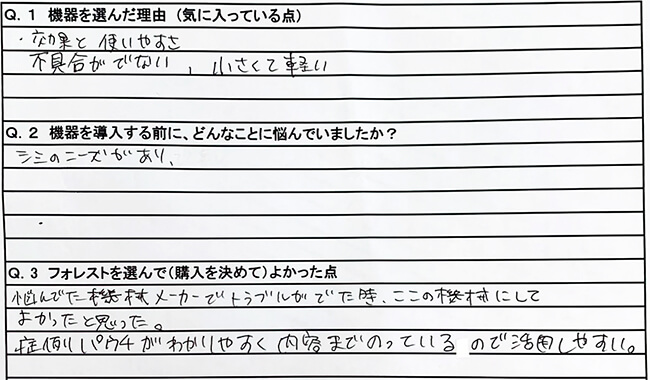 Q. 1 機器を選んだ理由（気に入っている点）
・効果と使いやすさ
不具合がでない、小さくて軽い
Q. 2 機器を導入する前に、どんなことに悩んでいましたか？
シミのニーズがあり、
Q. 3 フォレストを選んで（購入を決めて）よかった点
悩んでた機械メーカーでトラブルがでた時、ここの機械にして
よかったと思った。
症例パウチがわかりやすく内容までのっているので活用しやすい。